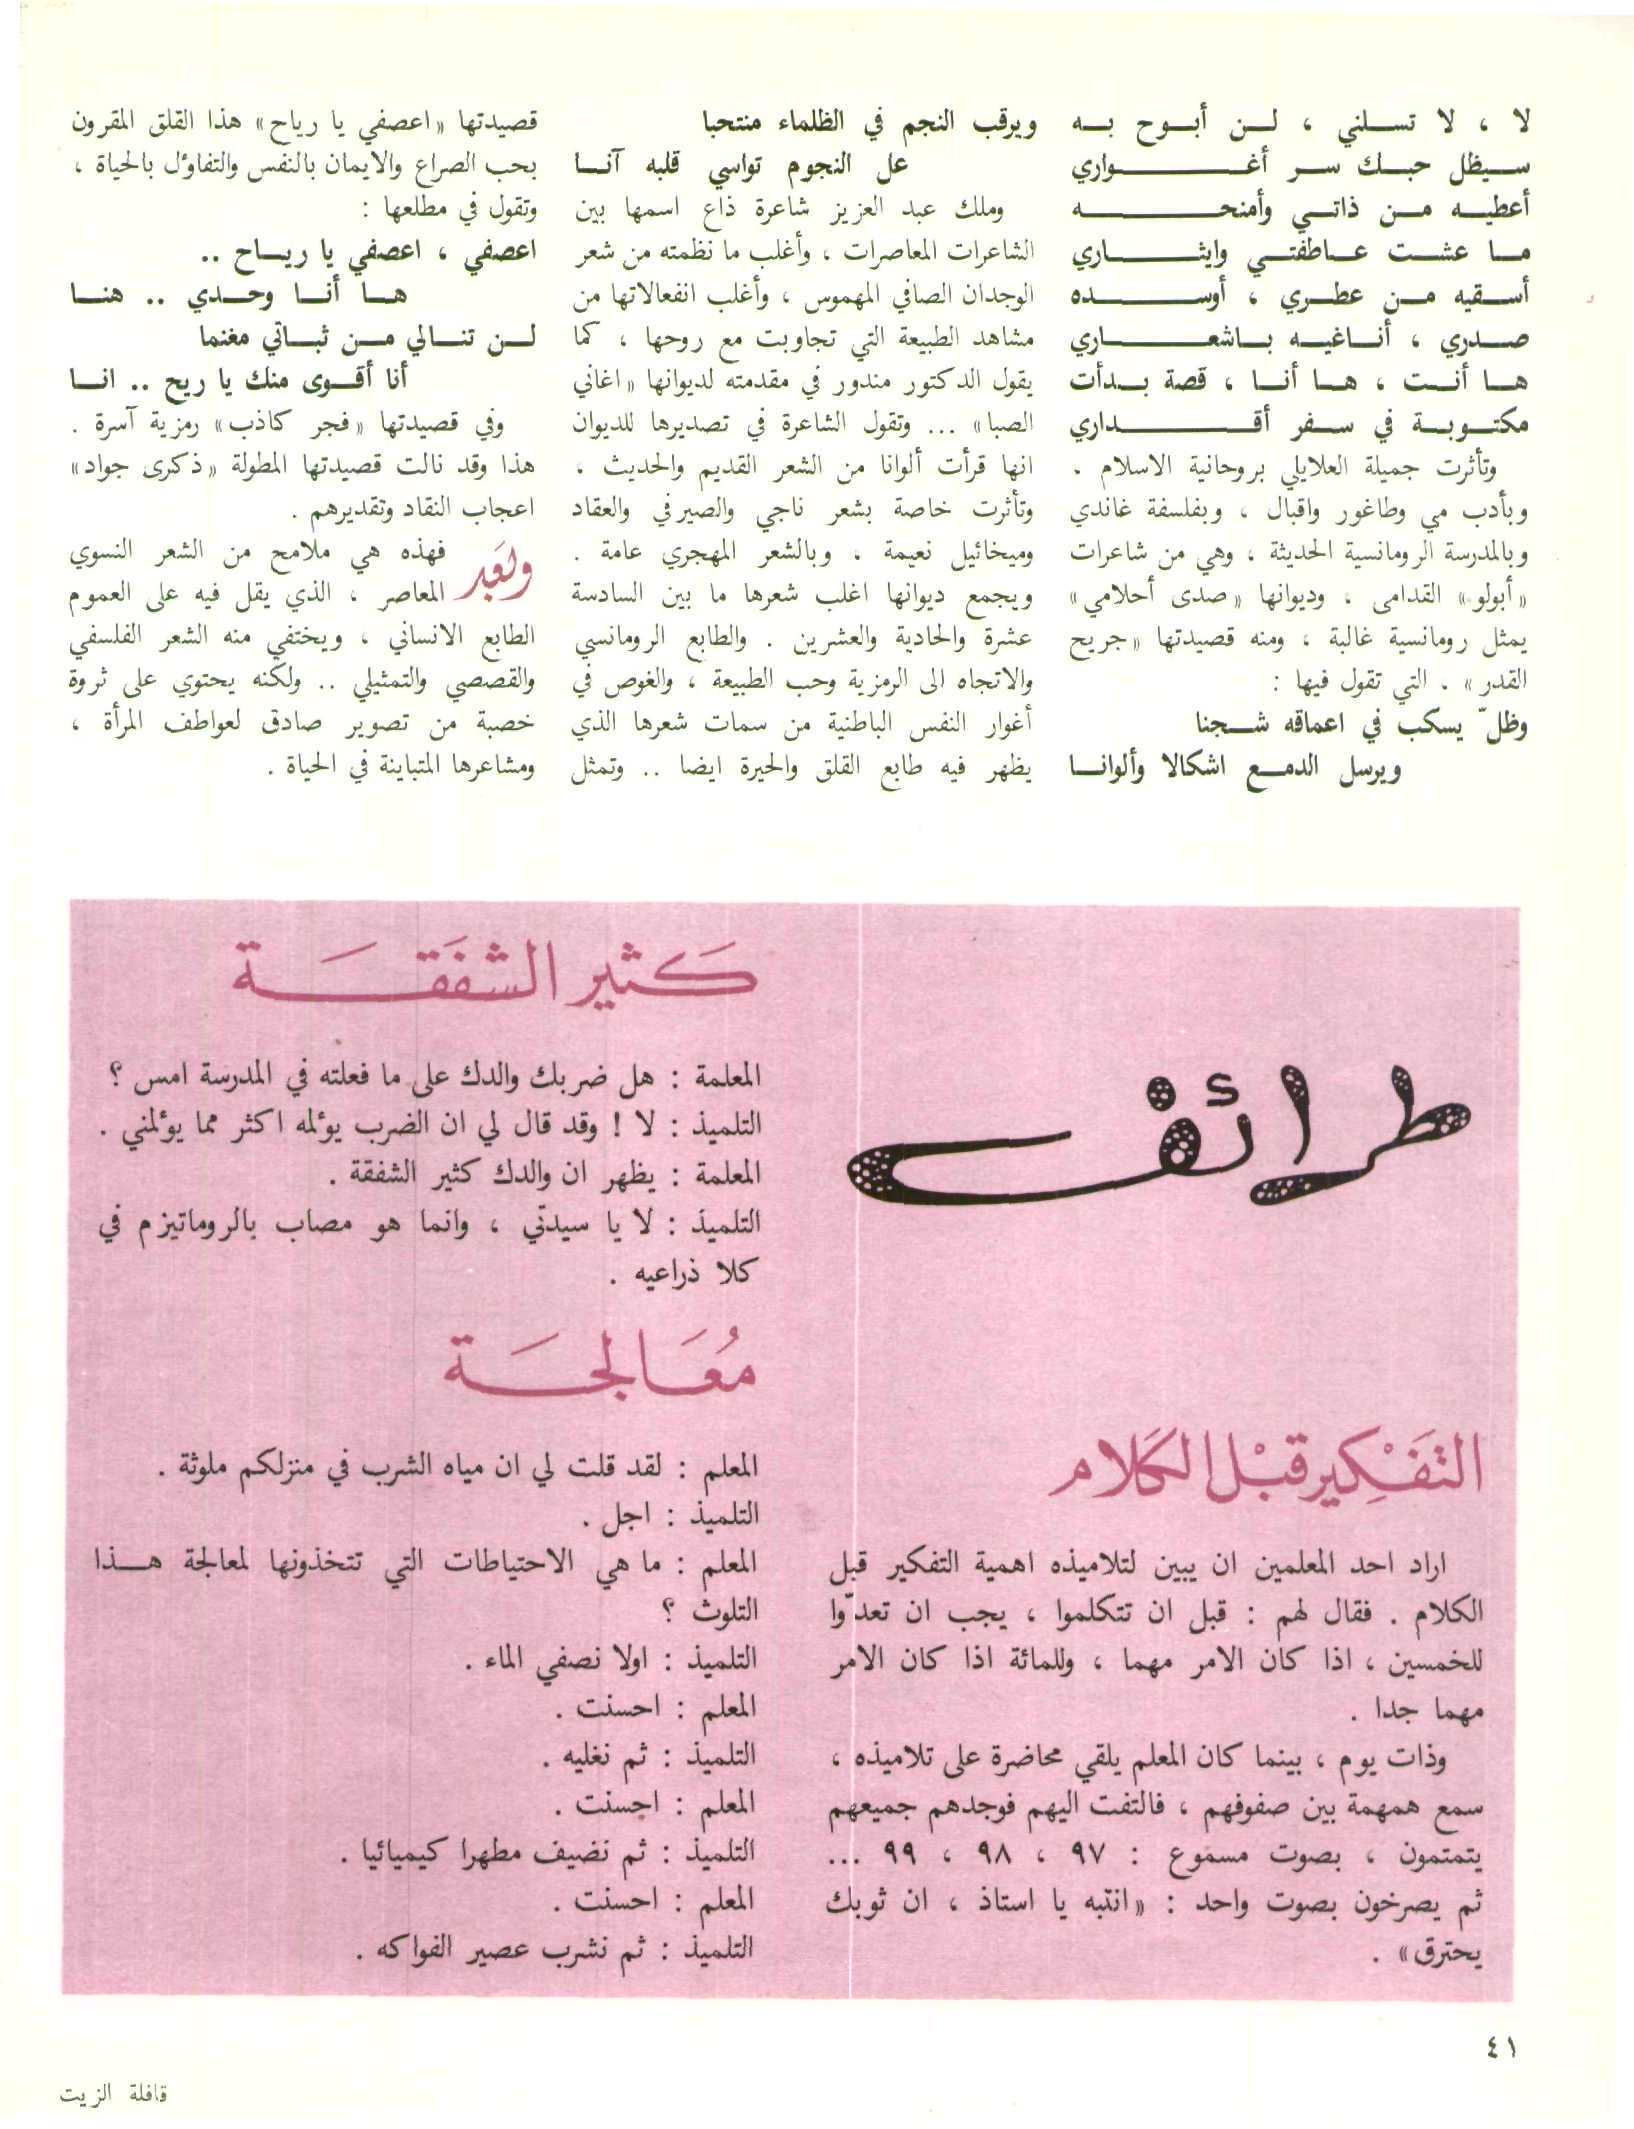 لا ، لا تسلني ، لن أبوح به
سيظل حبك سر أغواري
أعطيه من ذاتي وأمنحه
ما عشت عاطفتي وايثاري
أسقيه من عطري ، أوسده
صدري ، أناغيه باشعاري
ها أنت ، ها أنا ، قصة بدأت
مكتوبة في سفر أقداري
وتأثرت جميلة العلايلي بروحانية الاسلام .
وبأدب مي وطاغور واقبال ، وبفلسفة غاندي
وبالمدرسة الرومانسية الحديثة ، وهي من شاعرات
«أبولو» القدامى ، وديوانها «صدى أحلامي»
يمثل رومانسية غالبة ، ومنه قصيدتها «جريح
القدر» . التي تقول فيها :
وظلّ يسكب في اعماقه شجنا
ويرسل الدمع اشكالا وألوانا
ويرقب النجم في الظلماء منتحبا
عل النجوم تواسي قلبه آنا
وملك عبد العزيز شاعرة ذاع اسمها بين
الشاعرات المعاصرات ، وأغلب ما نظمته من شعر
الوجدان الصافي المهموس ، وأغلب انفعالاتها من
مشاهد الطبيعة التي تجاوبت مع روحها ، كما
يقول الدكتور مندور في مقدمته لديوانها «اغاني
الصبا» ... وتقول الشاعرة في تصديرها للديوان
انها قرأت ألوانا من الشعر القديم والحديث ،
وتأثرت خاصة بشعر ناجي والصيرفي والعقاد
وميخائيل نعيمة ، وبالشعر المهجري عامة .
ويجمع ديوانها اغلب شعرها ما بين السادسة
عشرة والحادية والعشرين . والطابع الرومانسي
والاتجاه الى الرمزية وحب الطبيعة ، والغوص في
أغوار النفس الباطنية من سمات شعرها الذي
يظهر فيه طابع القلق والحيرة ايضا .. وتمثل
قصيدتها «اعصفي يا رياح» هذا القلق المقرون
بحب الصراع والايمان بالنفس والتفاؤل بالحياة ،
وتقول في مطلعها :
اعصفي ، اعصفي يا رياح ..
ها أنا وحدي .. هنا
لن تنالي من ثباتي مغنما
أنا أقوى منك يا ريح .. انا
وفي قصيدتها «فجر كاذب» رمزية آسرة .
هذا وقد نالت قصيدتها المطولة «ذكرى جواد»
اعجاب النقاد وتقديرهم .
وبَعد فهذه هي ملامح من الشعر النسوي
المعاصر ، الذي يقل فيه على العموم
الطابع الانساني ، ويختفي منه الشعر الفلسفي
والقصصي والتمثيلي .. ولكنه يحتوي على ثروة
خصبة من تصوير صادق لعواطف المرأة ،
ومشاعرها المتباينة في الحياة .
طرائف
التَفْكِير قبْل الكَلام
اراد احد المعلمين ان يبين لتلاميذه اهمية التفكير قبل
الكلام . فقال لهم : قبل ان تتكلموا ، يجب ان تعدّوا
للخمسين ، اذا كان الامر مهما ، وللمائة اذا كان الامر
مهما جدا .
وذات يوم ، بينما كان المعلم يلقي محاضرة على تلاميذه ،
سمع همهمة بين صفوفهم ، فالتفت اليهم فوجدهم جميعهم
يتمتمون ، بصوت مسموع : ٩٧ ، ٩٨ ، ٩٩ ...
ثم يصرخون بصوت واحد : «انتبه يا استاذ ، ان ثوبك
يحترق» .
كَثير الشفَقَة
المعلمة : هل ضربك والدك على ما فعلته في المدرسة امس ؟
التلميذ : لا ! وقد قال لي ان الضرب يؤلمه اكثر مما يؤلمني .
المعلمة : يظهر ان والدك كثير الشفقة .
التلميذ : لا يا سيدتي ، وانما هو مصاب بالروماتيزم في
كلا ذراعيه .
مُعَالجَة
المعلم : لقد قلت لي ان مياه الشرب في منزلكم ملوثة .
التلميذ : اجل .
المعلم : ما هي الاحتياطات التي تتخذونها لمعالجة هذا
التلوث ؟
التلميذ : اولا نصفي الماء .
المعلم : احسنت .
التلميذ : ثم نغليه .
المعلم : احسنت .
التلميذ : ثم نضيف مطهرا كيميائيا .
المعلم : احسنت .
التلميذ : ثم نشرب عصير الفواكه .
٤١
قافلة الزيت